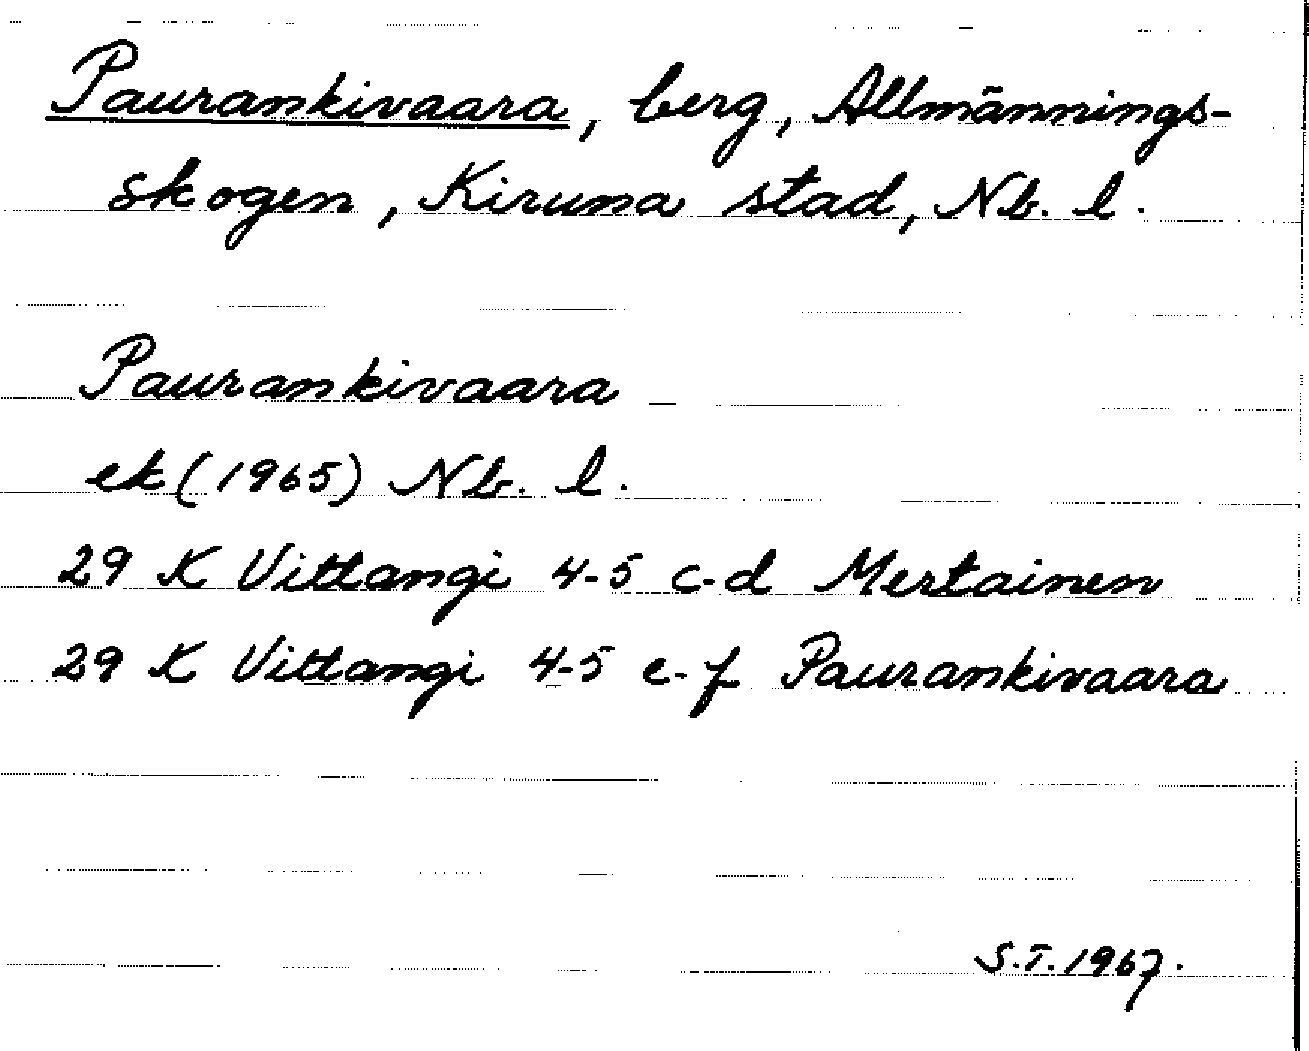 Paurankivaara, berg, Allmännings-
skogen, Kiruna stad, Nb. l.
Paurankivaara
ek (1965) Nb. l.
29 K Vittangi 4-5 c-d Mertainen
29 K Vittangi 4-5 e-f Paurankivaara
S.T. 1967.